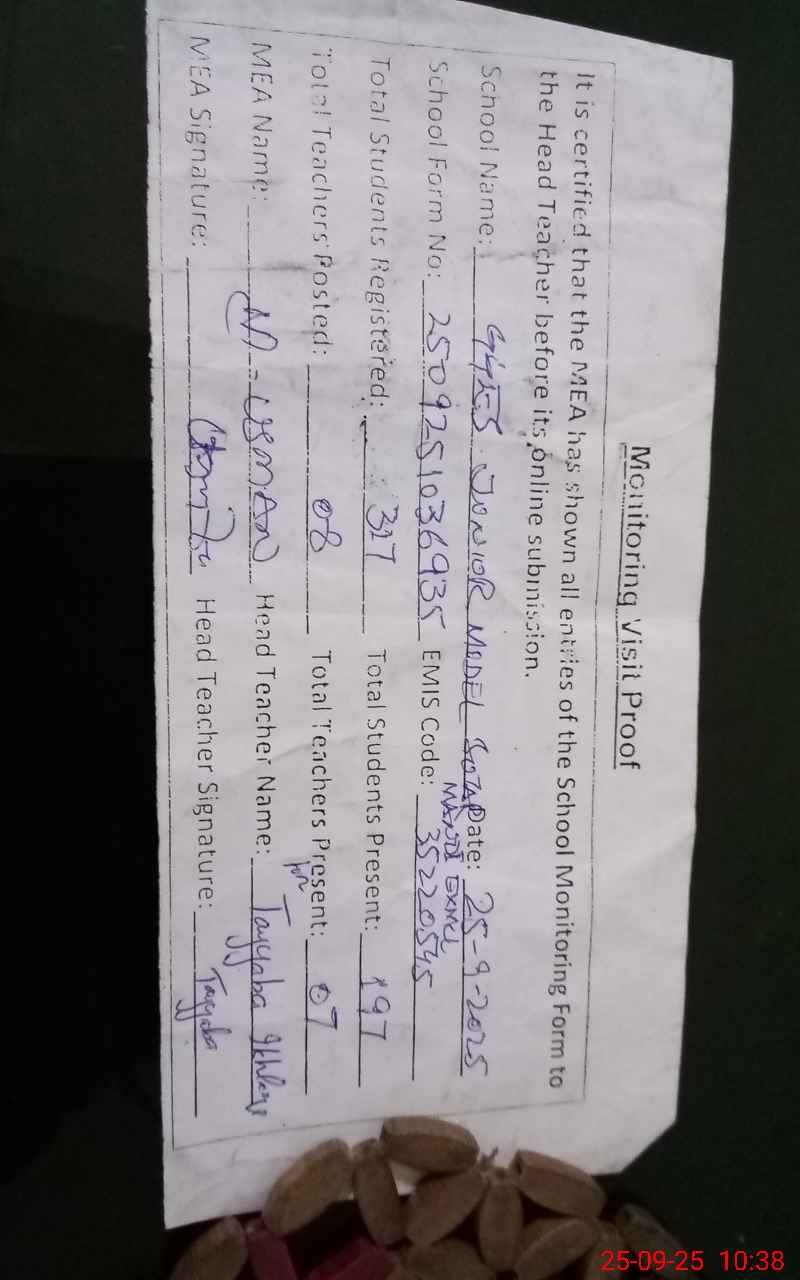 Monitoring Visit Proof
It is certified that the MEA has shown all entries of the School Monitoring Form to
the Head Teacher before its online submission.
School Name: GGES JUNIOR MODEL Date: 25-9-2025
MANDI
School Form No: 2509251036935 EMIS Code: 35220545
Total Students Registered: 317 Total Students Present: 197
Total Teachers Posted: 08 Total Teachers Present: 07
MEA Name: M-USMAN Head Teacher Name: Tayyaba
MEA Signature: Head Teacher Signature: Tayyaba
25-09-25 10:38